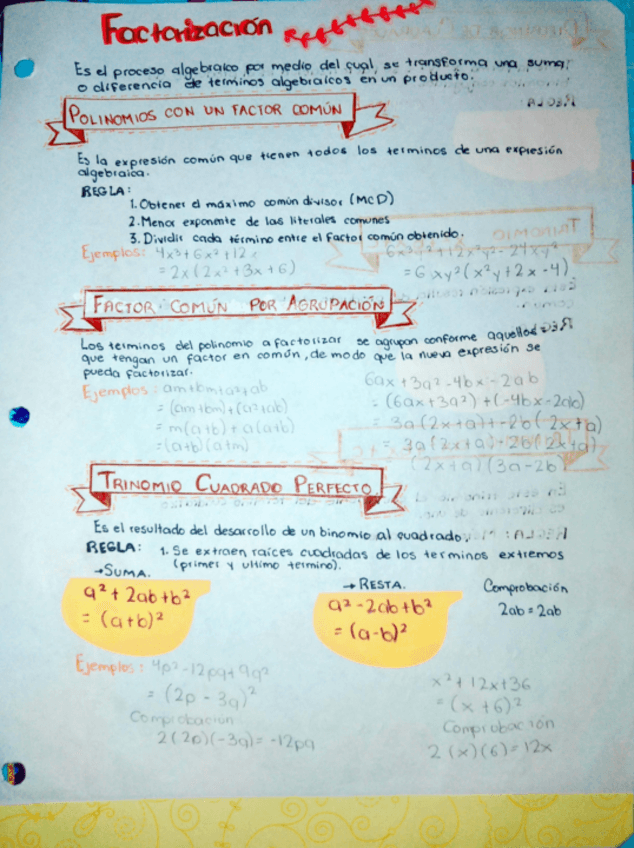 Factorización
Es el proceso algebraico por medio del cual, se transforma una suma
o diferencia de terminos algebraicos en un producto.
POLINOMIOS CON UN FACTOR COMÚN
Es la expresión común que tienen todos los terminos de una expresión
algebraica.
REGLA:
1. Obtener el máximo común divisor (MCD)
2. Menor exponente de las literales comunes
3. Dividir cada término entre el factor común obtenido.
Ejemplos: 4x³+6x²+12x
= 2x(2x²+3x+6)
6x³y²+12x²y²-24xy²
= 6xy²(x²y+2x-4)
FACTOR COMÚN POR AGRUPACIÓN
Los terminos del polinomio a factorizar se agrupan conforme aquellos
que tengan un factor en común, de modo que la nueva expresión se
pueda factorizar.
Ejemplos: am+bm+a²+ab
= (am+bm)+(a²+ab)
= m(a+b)+a(a+b)
= (a+b)(a+m)
6ax+3a²-4bx-2ab
= (6ax+3a²)+(-4bx-2ab)
= 3a(2x+a)+-2b(2x+a)
= 3a(2x+a)-2b(2x+a)
(2x+a)(3a-2b)
TRINOMIO CUADRADO PERFECTO
Es el resultado del desarrollo de un binomio al cuadrado.
REGLA: 1. Se extraen raíces cuadradas de los terminos extremos
(primer y ultimo termino).
→SUMA.
a²+2ab+b²
= (a+b)²
→RESTA.
a²-2ab+b²
= (a-b)²
Comprobación
2ab=2ab
Ejemplos: 4p²-12pq+9q²
= (2p-3q)²
Comprobación
2(2p)(-3q)=-12pq
x²+12x+36
= (x+6)²
Comprobación
2(x)(6)=12x